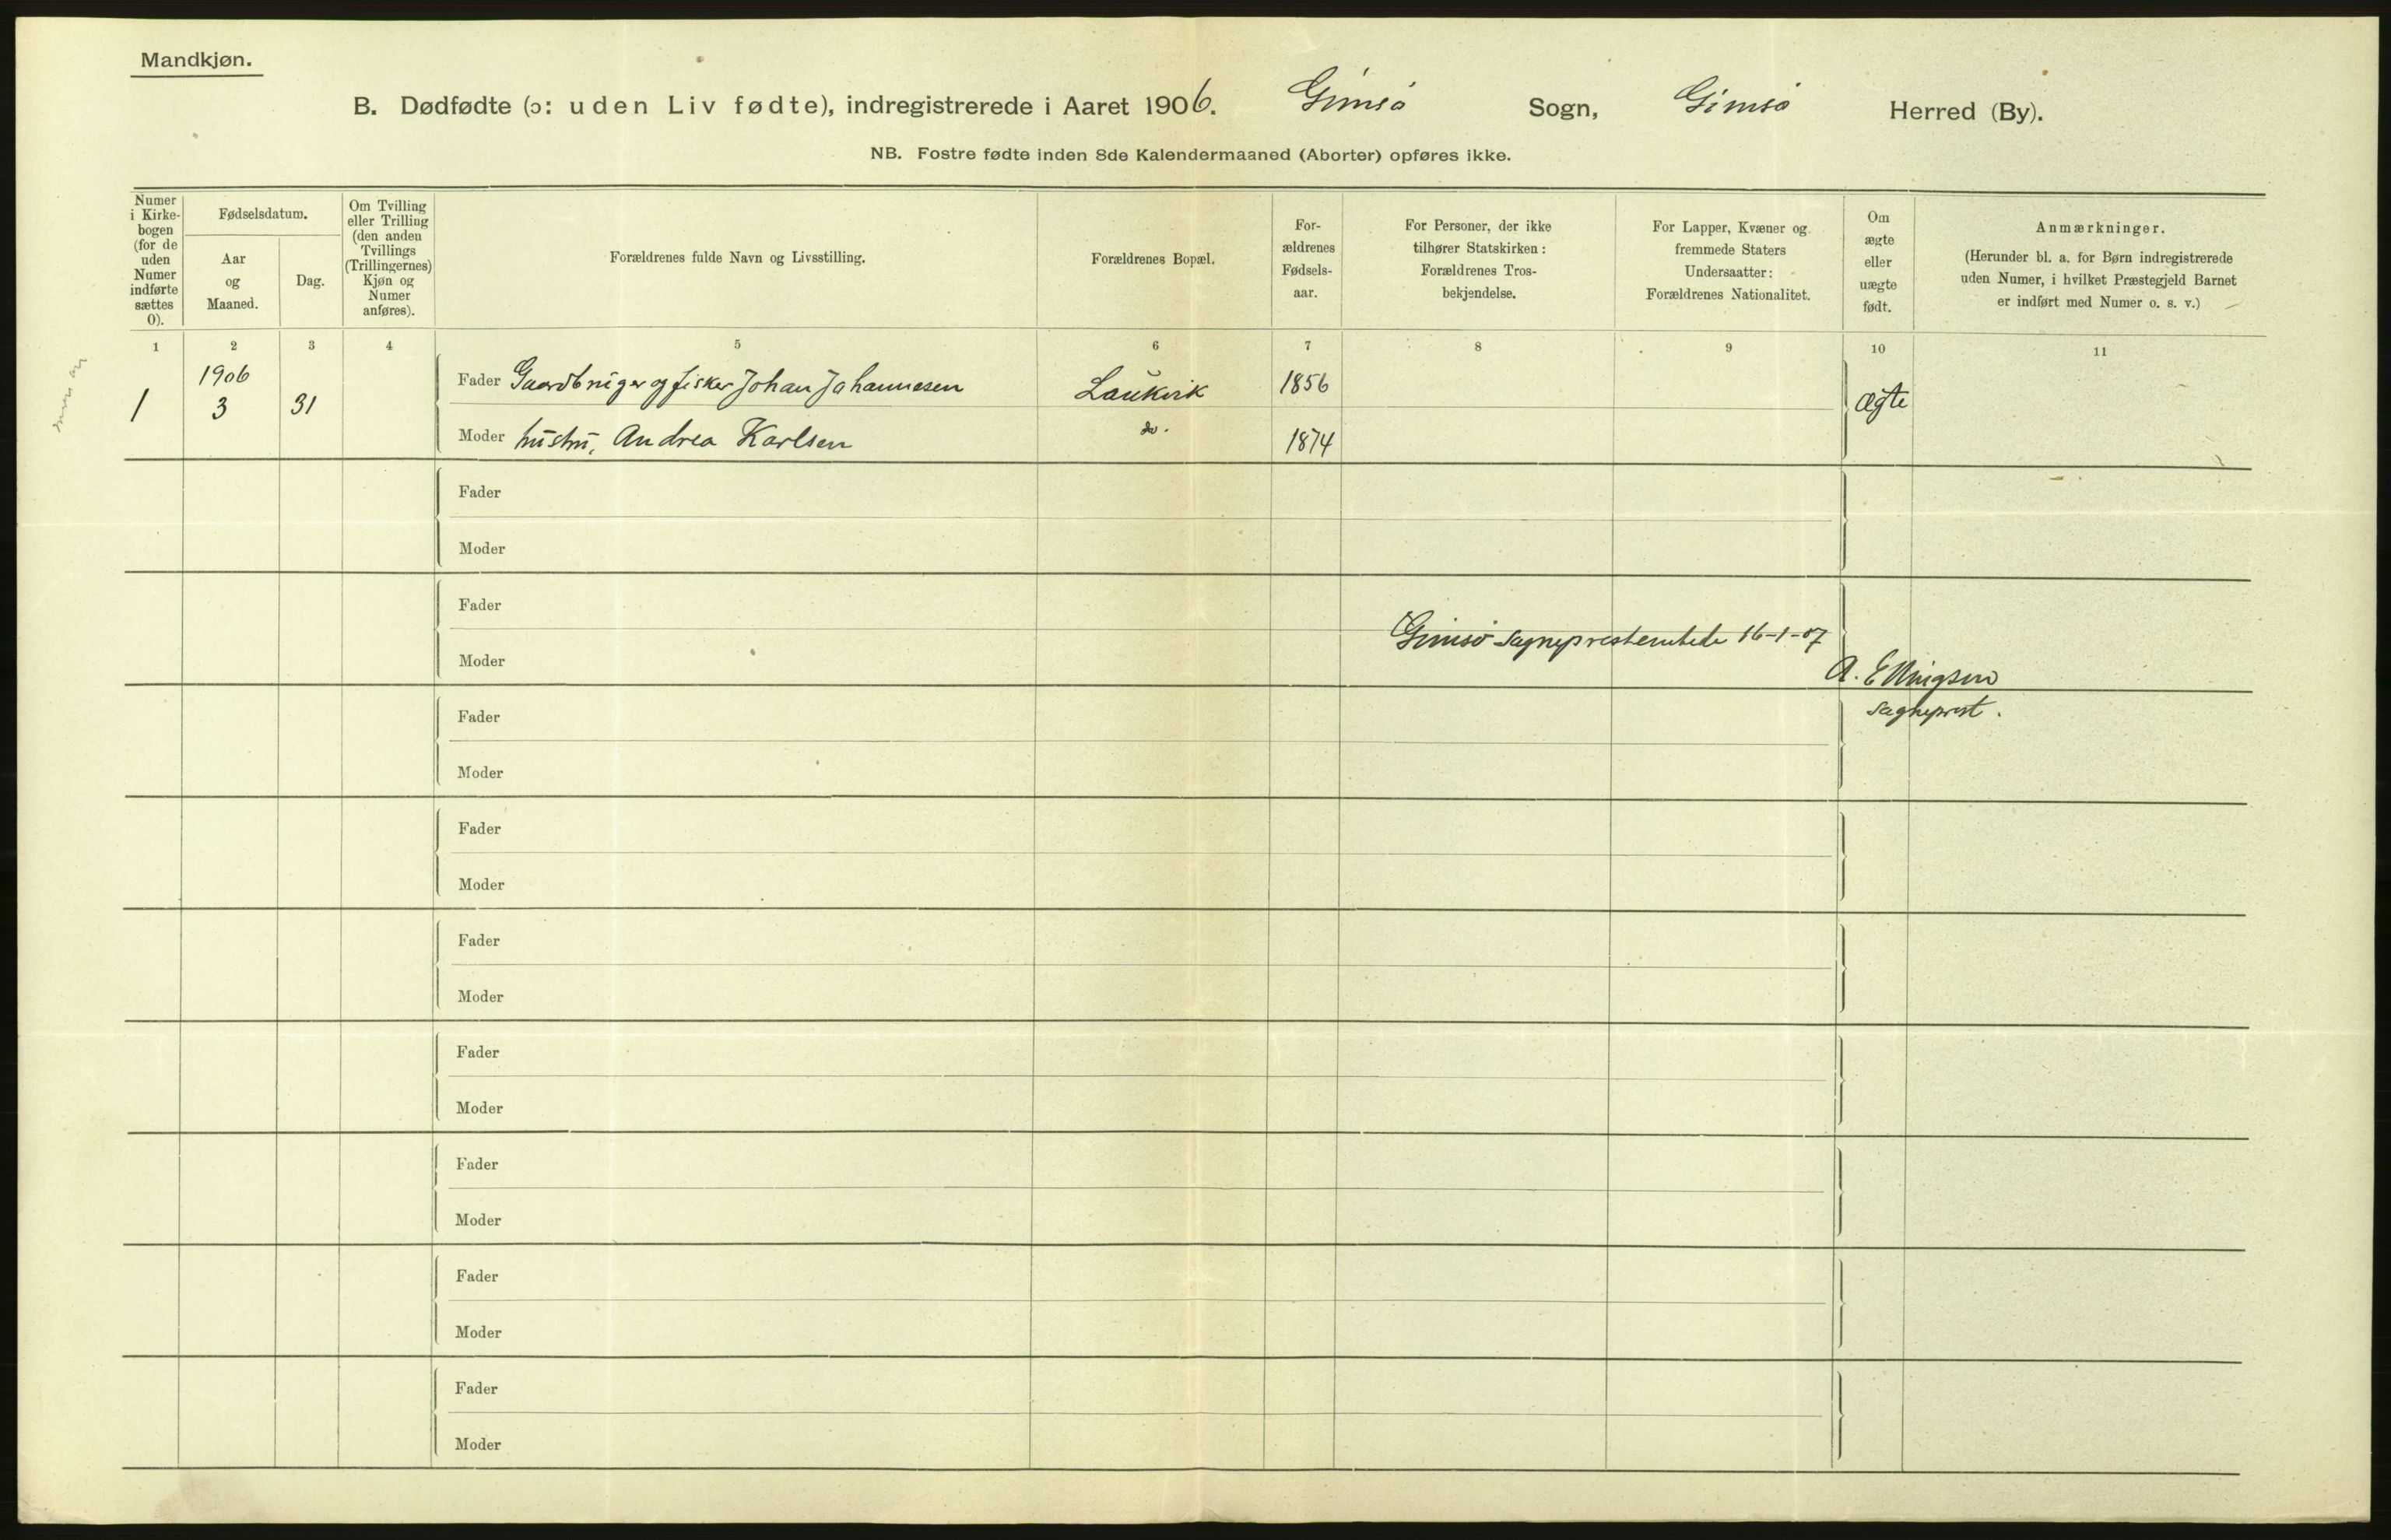 Mandkjøn.
B. Dødfødte (ɔ: uden Liv fødte), indregistrerede i Aaret 1906. Gimsø Sogn, Gimsø Herred (By).
NB. Fostre fødte inden 8de Kalendermaaned (Aborter) opføres ikke.
Numer
i Kirke-
bogen
(for de
uden
Numer
indførte
sættes
0).
Fødselsdatum.
Aar
og
Maaned.
Dag.
Om Tvilling
eller Trilling
(den anden
Tvillings
(Trillingernes)
Kjøn og
Numer
anføres).
Forældrenes fulde Navn og Livsstilling.
Forældrenes Bopæl.
For-
ældrenes
Fødsels-
aar.
For Personer, der ikke
tilhører Statskirken:
Forældrenes Tros-
bekjendelse.
For Lapper, Kvæner og
fremmede Staters
Undersaatter:
Forældrenes Nationalitet.
Om
ægte
eller
uægte
født.
Anmærkninger.
(Herunder bl. a. for Børn indregistrerede
uden Numer, i hvilket Præstegjeld Barnet
er indført med Numer o. s. v.)
1 2 3 4 5 6 7 8 9 10 11
1906
1 3 31 Fader Gaardbruger og fisker Johan Johannesen Laukvik 1856 ægte
Moder hustru, Andrea Karlsen do. 1874
Fader
Moder
Fader
Gimsø sogneprestembede 16-1-07
Moder
A. Ellingsen
sogneprest.
Fader
Moder
Fader
Moder
Fader
Moder
Fader
Moder
Fader
Moder
Fader
Moder
Fader
Moder